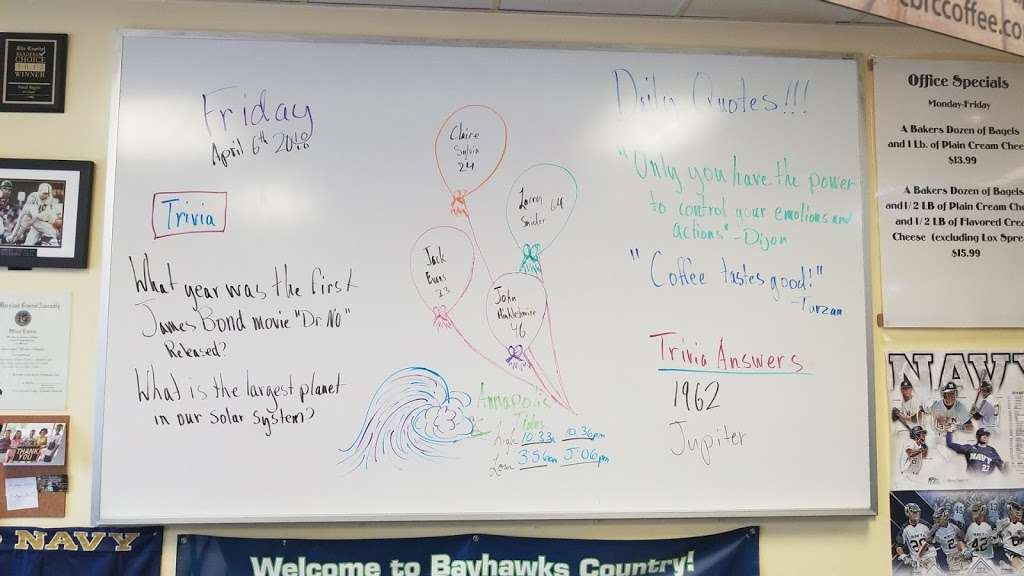 Friday
April 6th
Trivia
What year was the first
James Bond movie "Dr. No"
Released?
What is the largest planet
in our solar system?
Claire
Sylvia
24
Larry 64
Snider
Jack
Evans
23
John
46
Annapolis
Tides
High 10:33a 10:36pm
Low 3:56am 5:06pm
Daily Quotes!!!
"Only you have the power
to control your emotions and
actions" - Dijon
"Coffee tastes good!"
- Tarzan
Trivia Answers
1962
Jupiter
cbrccoffee.co
Office Specials
Monday-Friday
A Bakers Dozen of Bagels
and 1 Lb. of Plain Cream Chee
$13.99
A Bakers Dozen of Bagels
and 1/2 LB of Plain Cream Ch
and 1/2 LB of Flavored Crea
Cheese (excluding Lox Spre
$15.99
NAVY
NAVY
27
CHOICE
WINNER
THANK
YOU
NAVY
Welcome to Bayhawks Country!